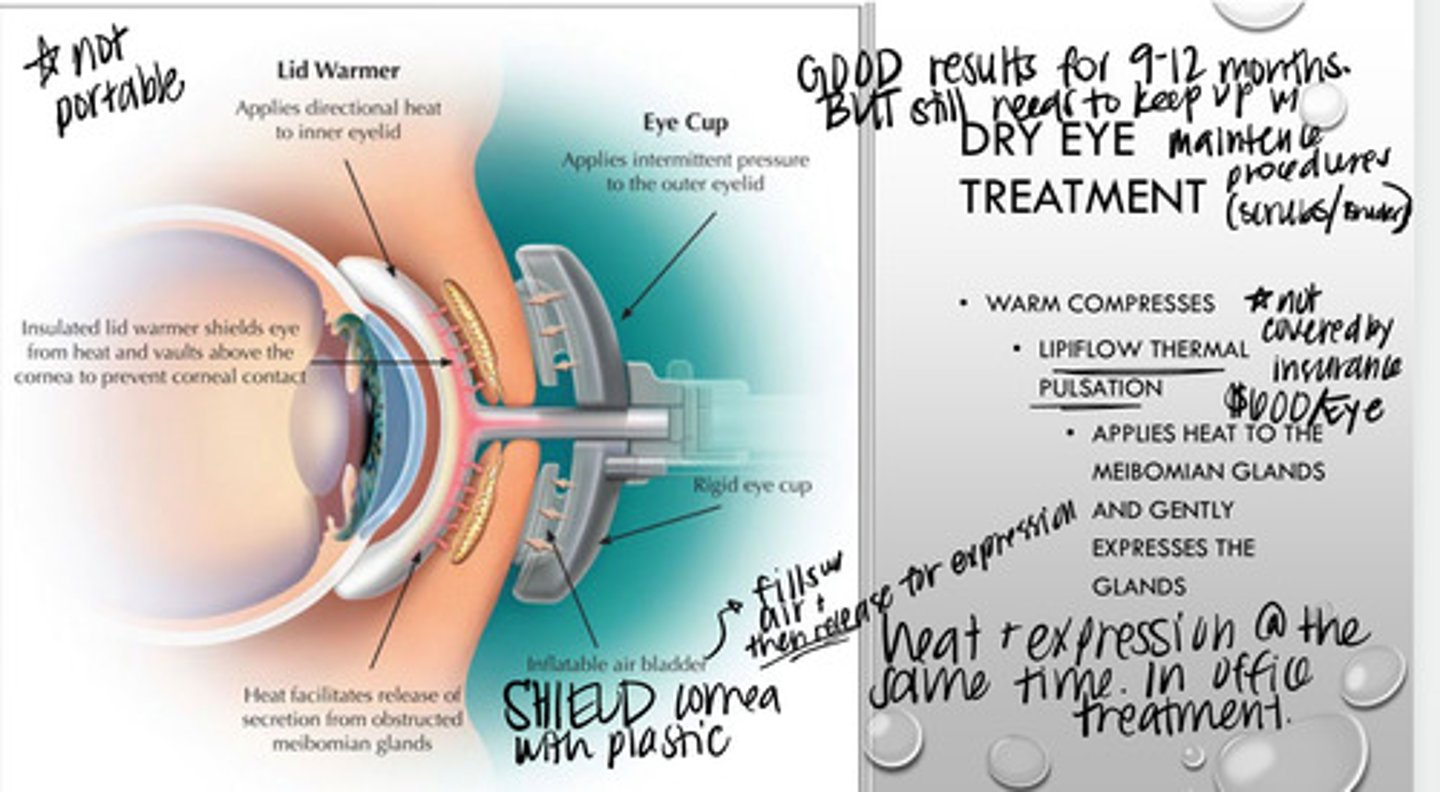 ☆ not
portable
Lid Warmer
Applies directional heat
to inner eyelid
Eye Cup
Applies intermittent pressure
to the outer eyelid
Insulated lid warmer shields eye
from heat and vaults above the
cornea to prevent corneal contact
Rigid eye cup
Inflatable air bladder
fills w
air +
then release for expression
Heat facilitates release of
secretion from obstructed
meibomian glands
SHIELD cornea
with plastic
GOOD results for 9-12 months.
BUT still needs to keep up w/
maintence
procedures
(scrubs/Bruder)
DRY EYE
TREATMENT
• WARM COMPRESSES
☆ not
covered by
insurance
$600/Eye
• LIPIFLOW THERMAL
PULSATION
• APPLIES HEAT TO THE
MEIBOMIAN GLANDS
AND GENTLY
EXPRESSES THE
GLANDS
heat + expression @ the
same time. In office
treatment.